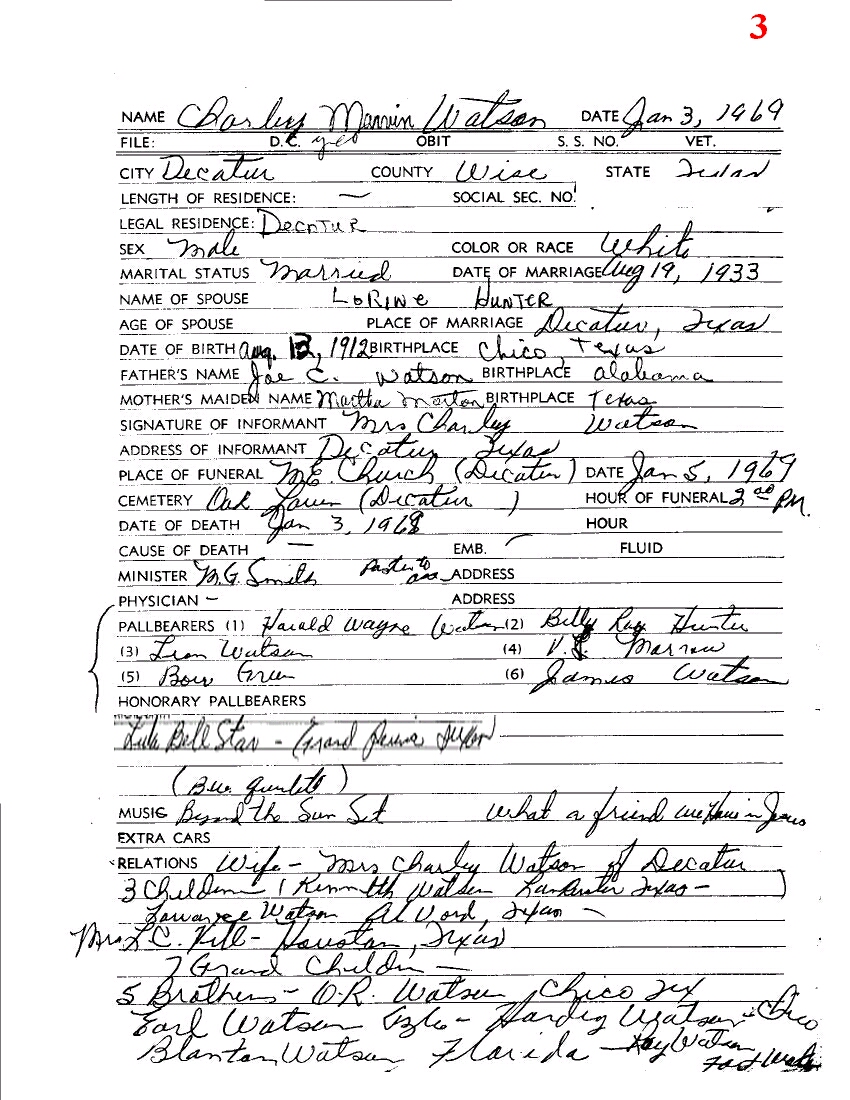 3
NAME Charley Marvin Watson DATE Jan 3, 1969
FILE: D.C. yes OBIT S. S. NO. VET.
CITY Decatur COUNTY Wise STATE Texas
LENGTH OF RESIDENCE: — SOCIAL SEC. NO.
LEGAL RESIDENCE: DECATUR
SEX Male COLOR OR RACE White
MARITAL STATUS Married DATE OF MARRIAGE Aug 19, 1933
NAME OF SPOUSE LORINE HUNTER
AGE OF SPOUSE PLACE OF MARRIAGE Decatur, Texas
DATE OF BIRTH Aug. 12, 1912 BIRTHPLACE Chico, Texas
FATHER'S NAME Joe C. Watson BIRTHPLACE Alabama
MOTHER'S MAIDEN NAME Martha Morton BIRTHPLACE Texas
SIGNATURE OF INFORMANT Mrs Charley Watson
ADDRESS OF INFORMANT Decatur Texas
PLACE OF FUNERAL M.E. Church (Decatur) DATE Jan 5, 1969
CEMETERY Oak Lawn (Decatur ) HOUR OF FUNERAL 2 00 PM.
DATE OF DEATH Jan 3, 1968 HOUR
CAUSE OF DEATH — EMB. FLUID
MINISTER M.G. Smith ADDRESS
PHYSICIAN – ADDRESS
PALLBEARERS (1) Harald Wayne Watson (2) Billy Ray Hunter
(3) Leon Watson (4) Marrow
(5) Green (6) James Watson
HONORARY PALLBEARERS
Lula Bell Star – Grand Texas
MUSIC Beyond the Sun Set What a friend we Have in Jesus
EXTRA CARS
RELATIONS Wife – Mrs Charley Watson of Decatur
3 Children 1 Kennith Watson Lancaster Texas –
Watson Alvord, Texas –
Mrs L.C. – Houston, Texas
7 Grand Children —
5 Brothers – O.R. Watson, Chico Tex
Earl Watson – Hardey Watson – Chico
Blanton Watson Florida – Ray Watson